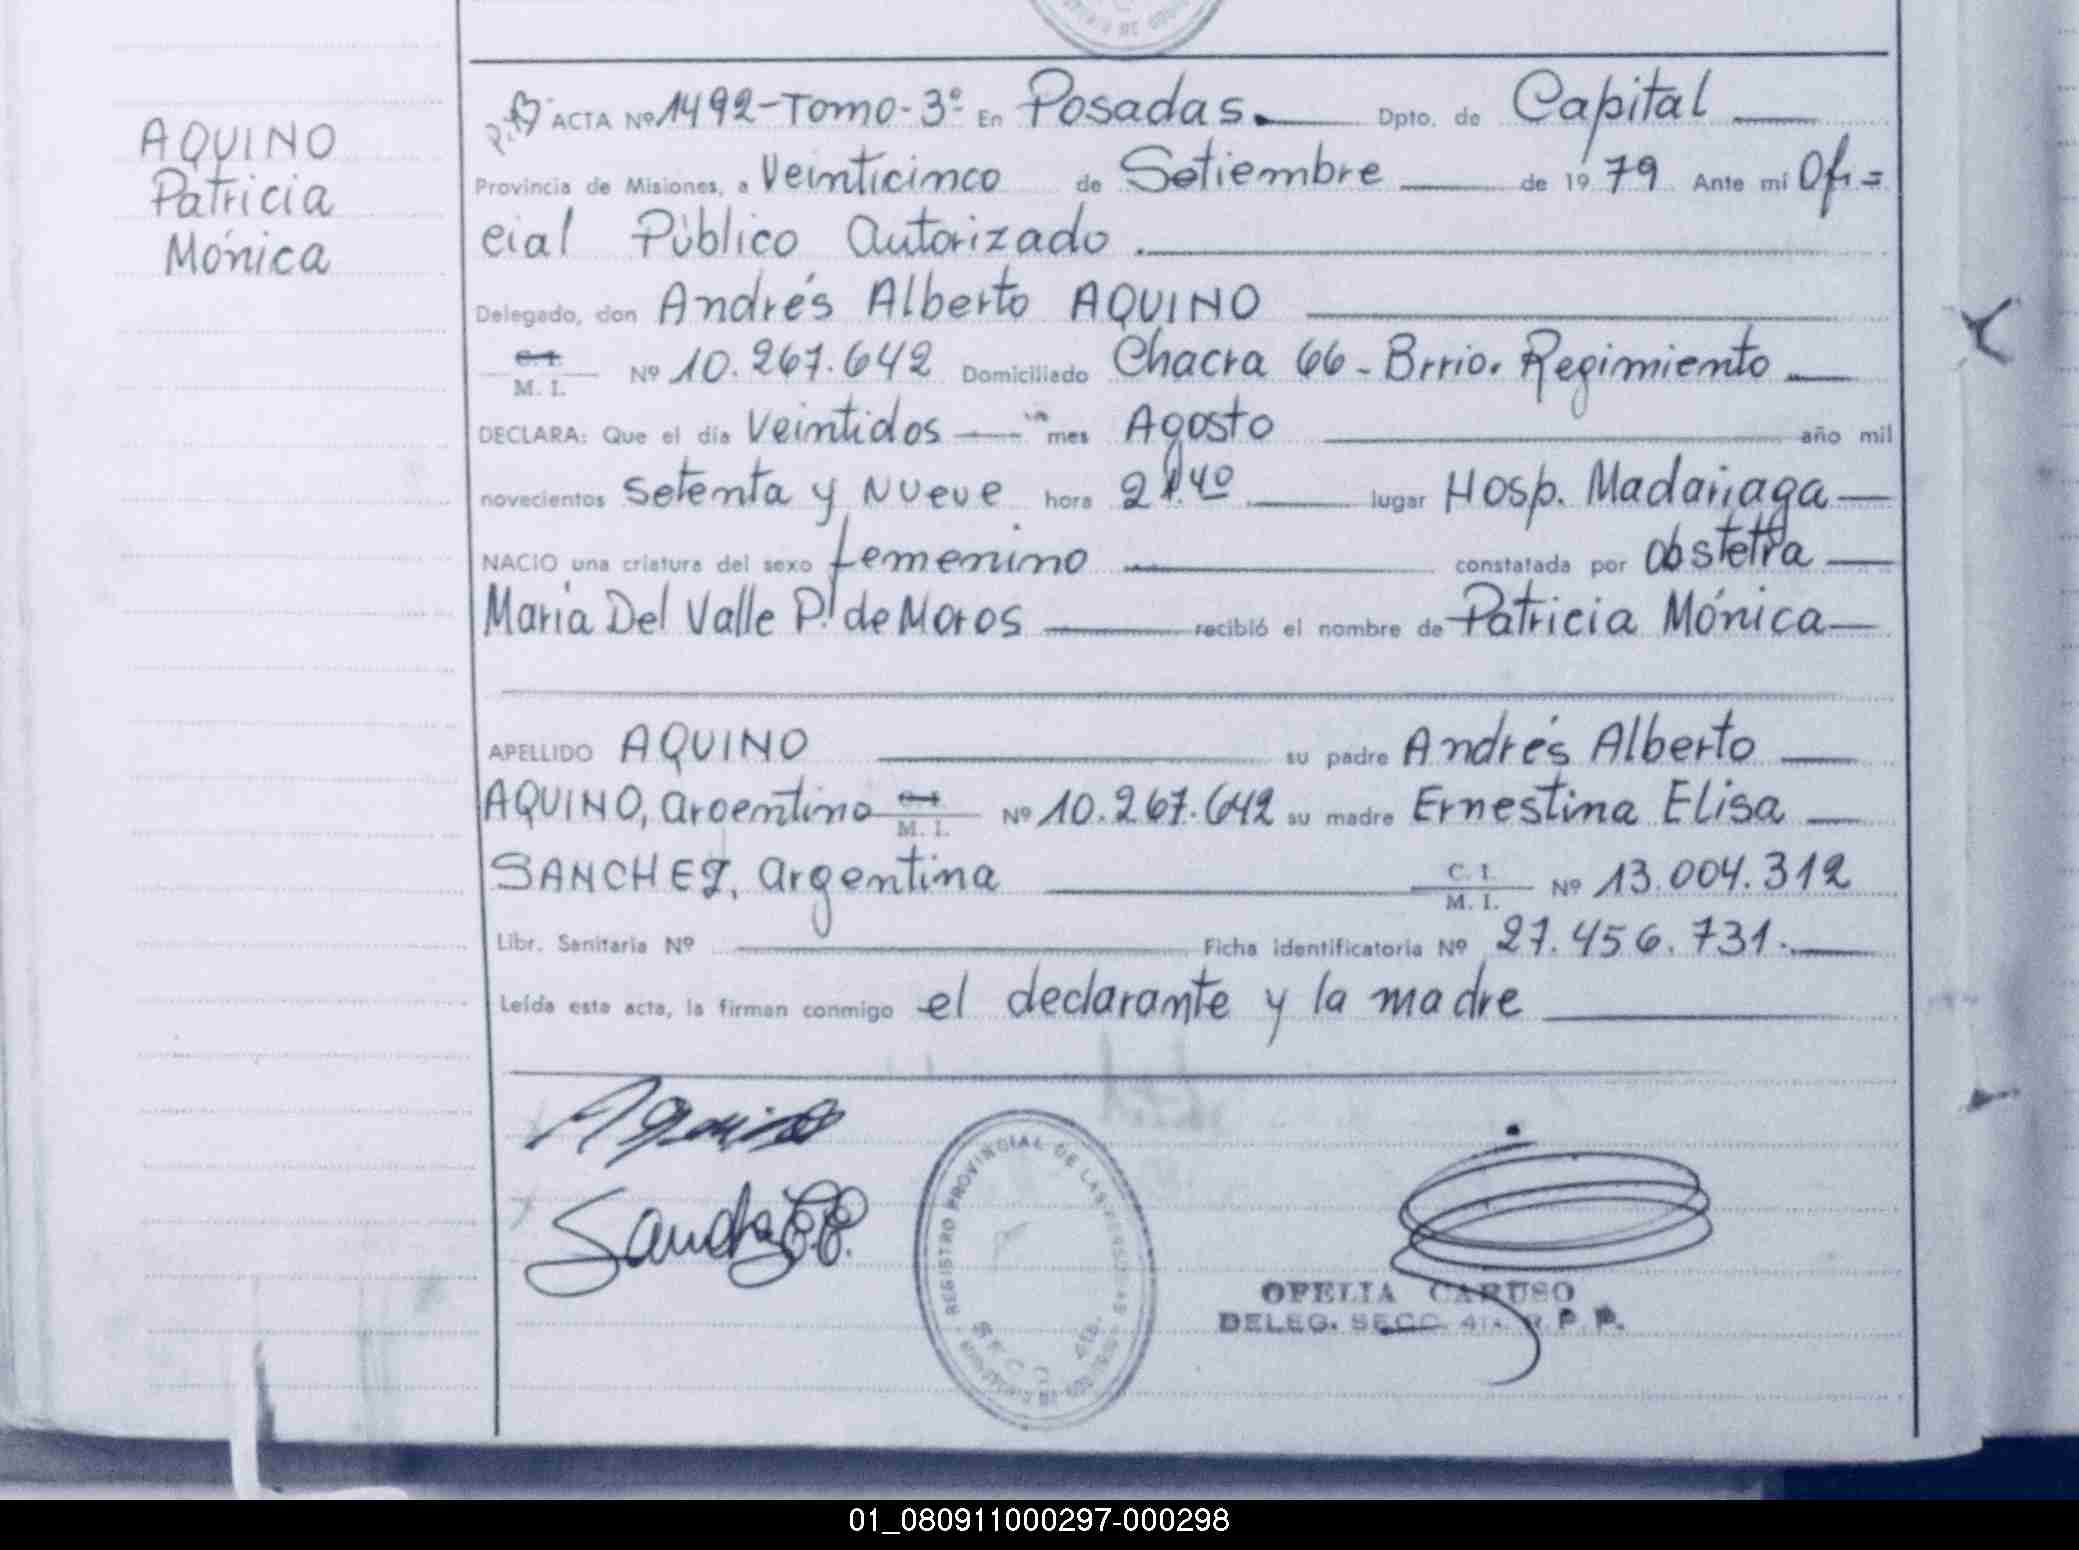 AQUINO
Patricia
Mónica
ACTA Nº 1492-Tomo-3º En Posadas. Dpto. de Capital
Provincia de Misiones, a Veinticinco de Setiembre de 1979 Ante mí Ofi=
cial Público Autorizado.
Delegado, don Andrés Alberto AQUINO
C. I.
M. I. Nº 10.267.642 Domiciliado Chacra 66 - Brrio. Regimiento
DECLARA: Que el día Veintidos mes Agosto año mil
novecientos setenta y Nueve hora 21.40 lugar Hosp. Madariaga
NACIO una criatura del sexo femenino constatada por obstetra
María Del Valle P. de Moros recibió el nombre de Patricia Mónica
APELLIDO AQUINO su padre Andrés Alberto
AQUINO, argentino M. I. Nº 10.267.642 su madre Ernestina Elisa
SANCHEZ, argentina C. I. M. I. Nº 13.004.312
Libr. Sanitaria Nº Ficha identificatoria Nº 27.456.731.
Leída esta acta, la firman conmigo el declarante y la madre
Aquino
Sanchez E.E.
REGISTRO PROVINCIAL DE LAS PERSONAS
SECC. 4ta.
OFELIA CARUSO
DELEG. SECC. 4ta. R.P.P.
01_080911000297-000298